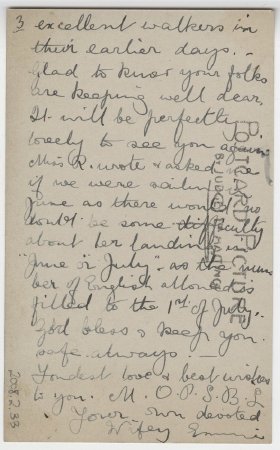 3 excellent walkers in
their earlier days. -
Glad to know your folks
are keeping well dear.
It will be perfectly
lovely to see you again
Miss R. wrote & asked me
if we were sailing
June as there would no
doubt be some difficulty
about her landing in
"June or July" as the num-
ber of English allowed is
filled to the 1st of July.
God bless & keep you
safe always. —
Fondest love & best wishes
to you. M. O. P. S. B. L
Your own devoted
Wifey Emmie
POSTCARD PICTURE
BY JUDGES HASTINGS
2008.2.33